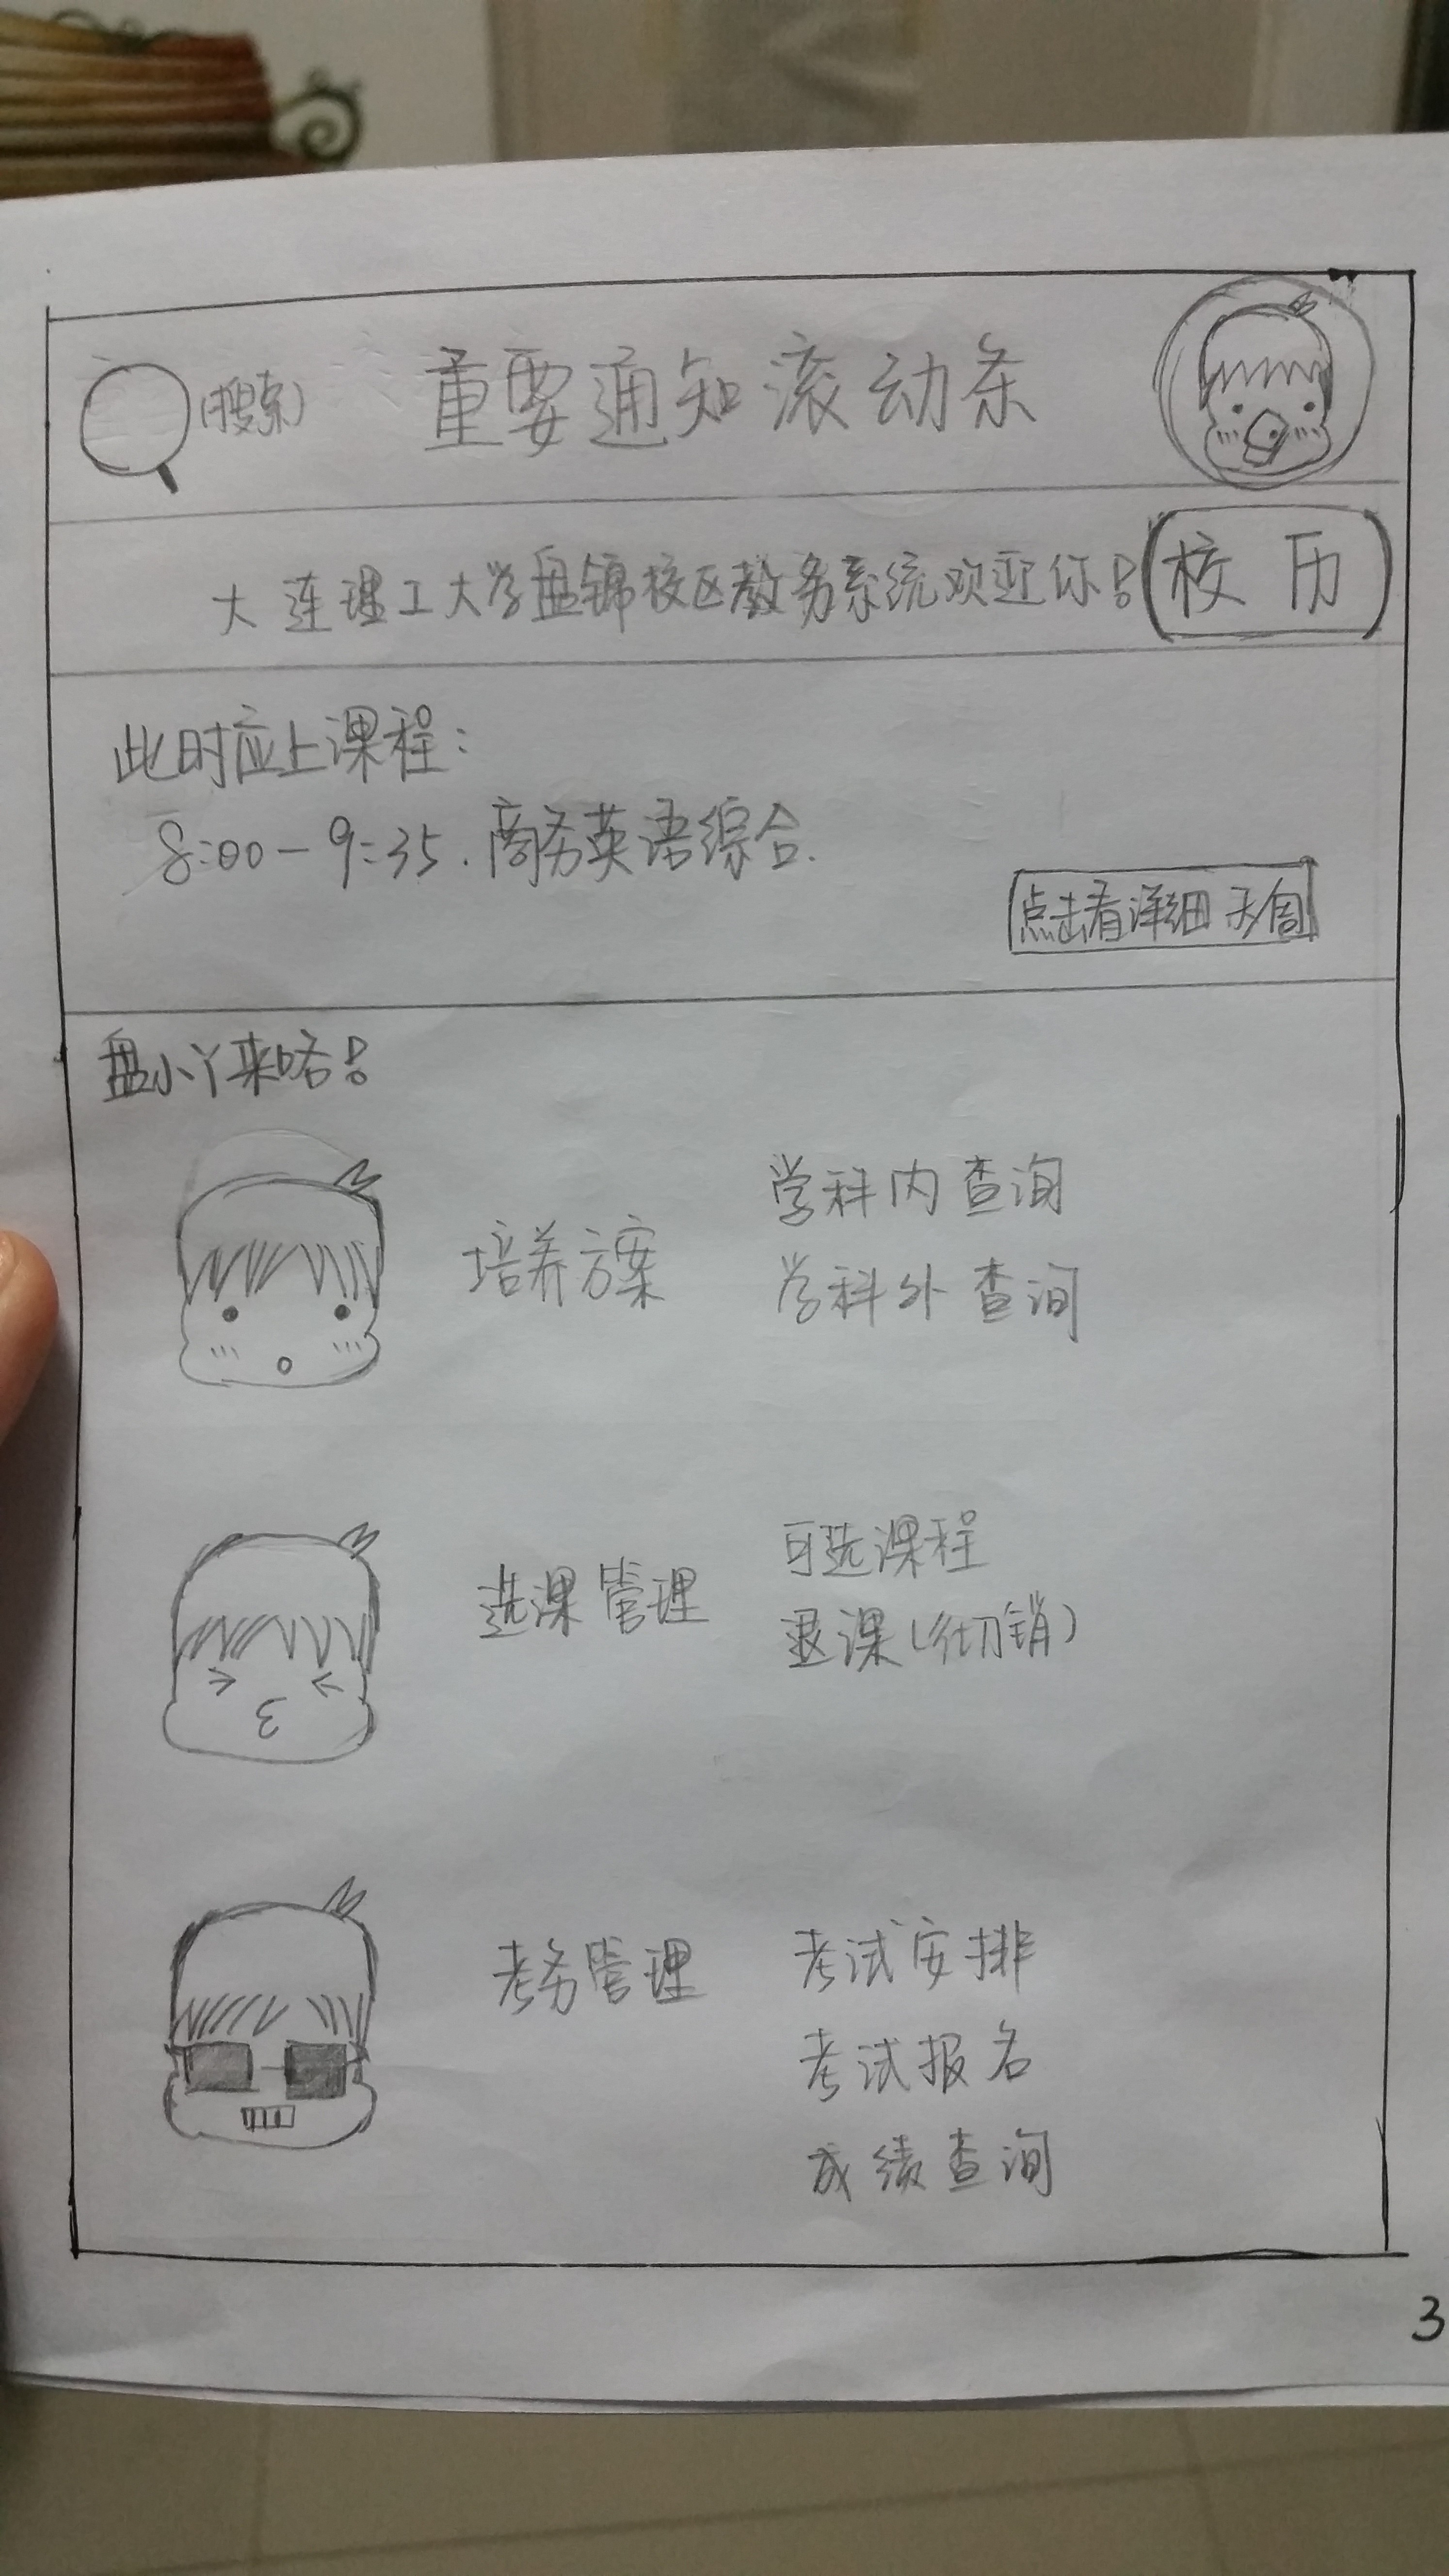 (搜索) 重要通知滚动条
大连理工大学盘锦校区教务系统欢迎你! 校历
此时应上课程:
8:00-9:35.商务英语综合.
点击看详细 天/周
盘小丫来咯!
学科内查询
培养方案
学科外查询
可选课程
选课管理
退课(彻销)
考务管理 考试安排
考试报名
成绩查询
3